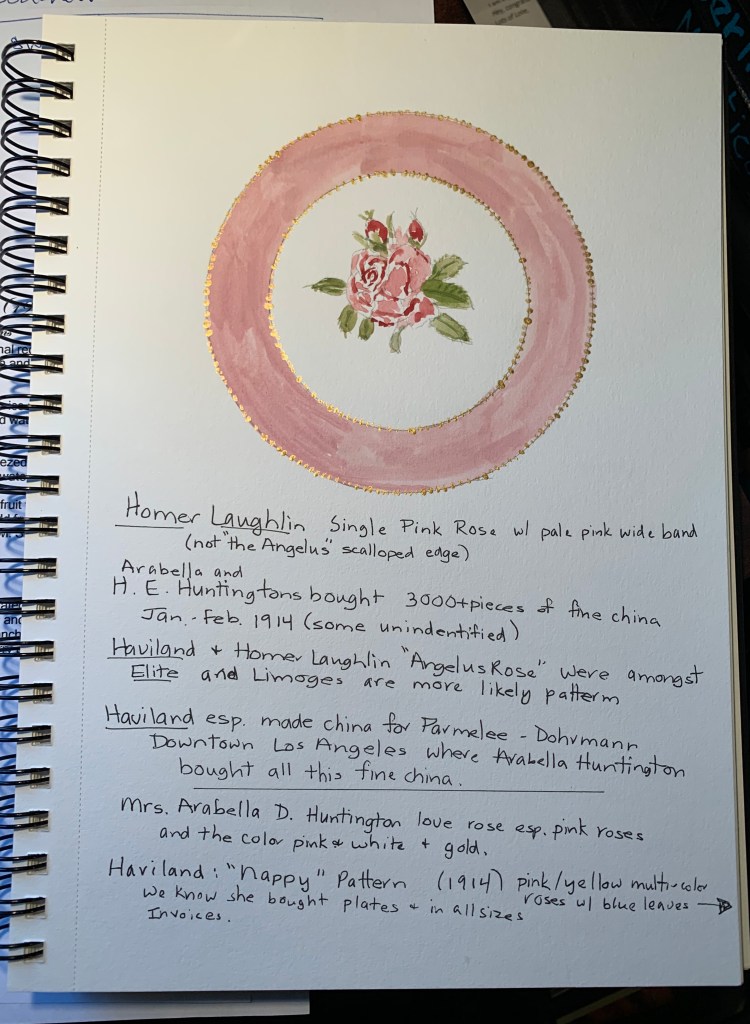 Homer Laughlin Single Pink Rose w/ pale pink wide band
(not "the Angelus" scalloped edge)
Arabella and
H. E. Huntingtons bought 3000+ pieces of fine china
Jan. - Feb. 1914 (some unidentified)
Haviland + Homer Laughlin "Angelus Rose" were amongst
Elite and Limoges are more likely patterm
Haviland esp. made china for Parmelee - Dohrmann
Downtown Los Angeles where Arabella Huntington
bought all this fine china.
Mrs. Arabella D. Huntington love rose esp. pink roses
and the color pink + white + gold.
Haviland : "Nappy" Pattern (1914) pink/yellow multi-color
roses w/ blue leaves →
We know she bought plates + in all sizes
Invoices.